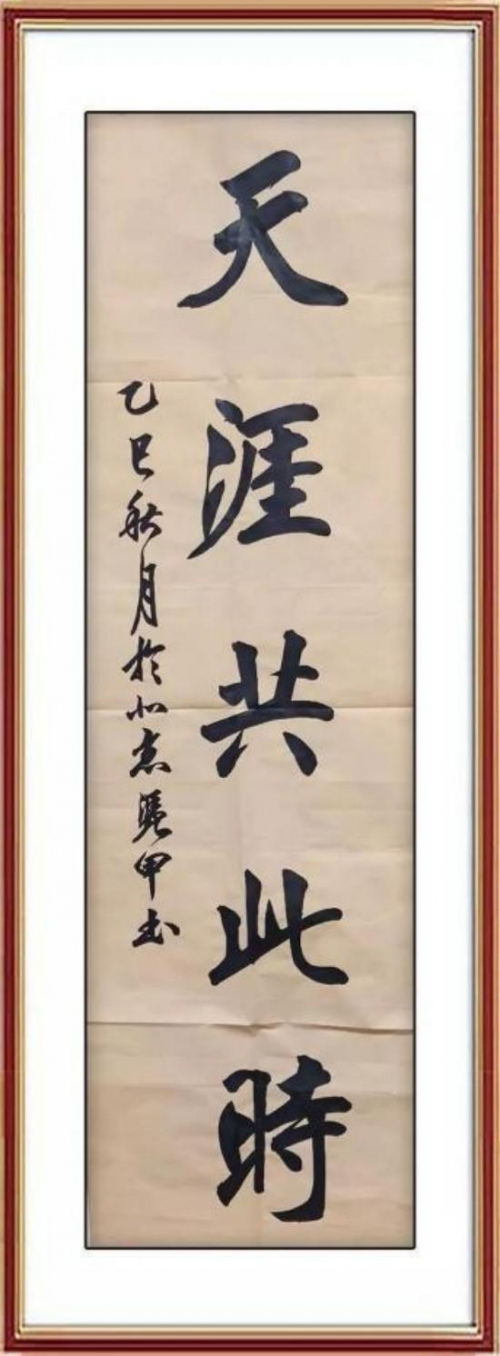 天涯共此時
乙巳秋月於北京張甲书